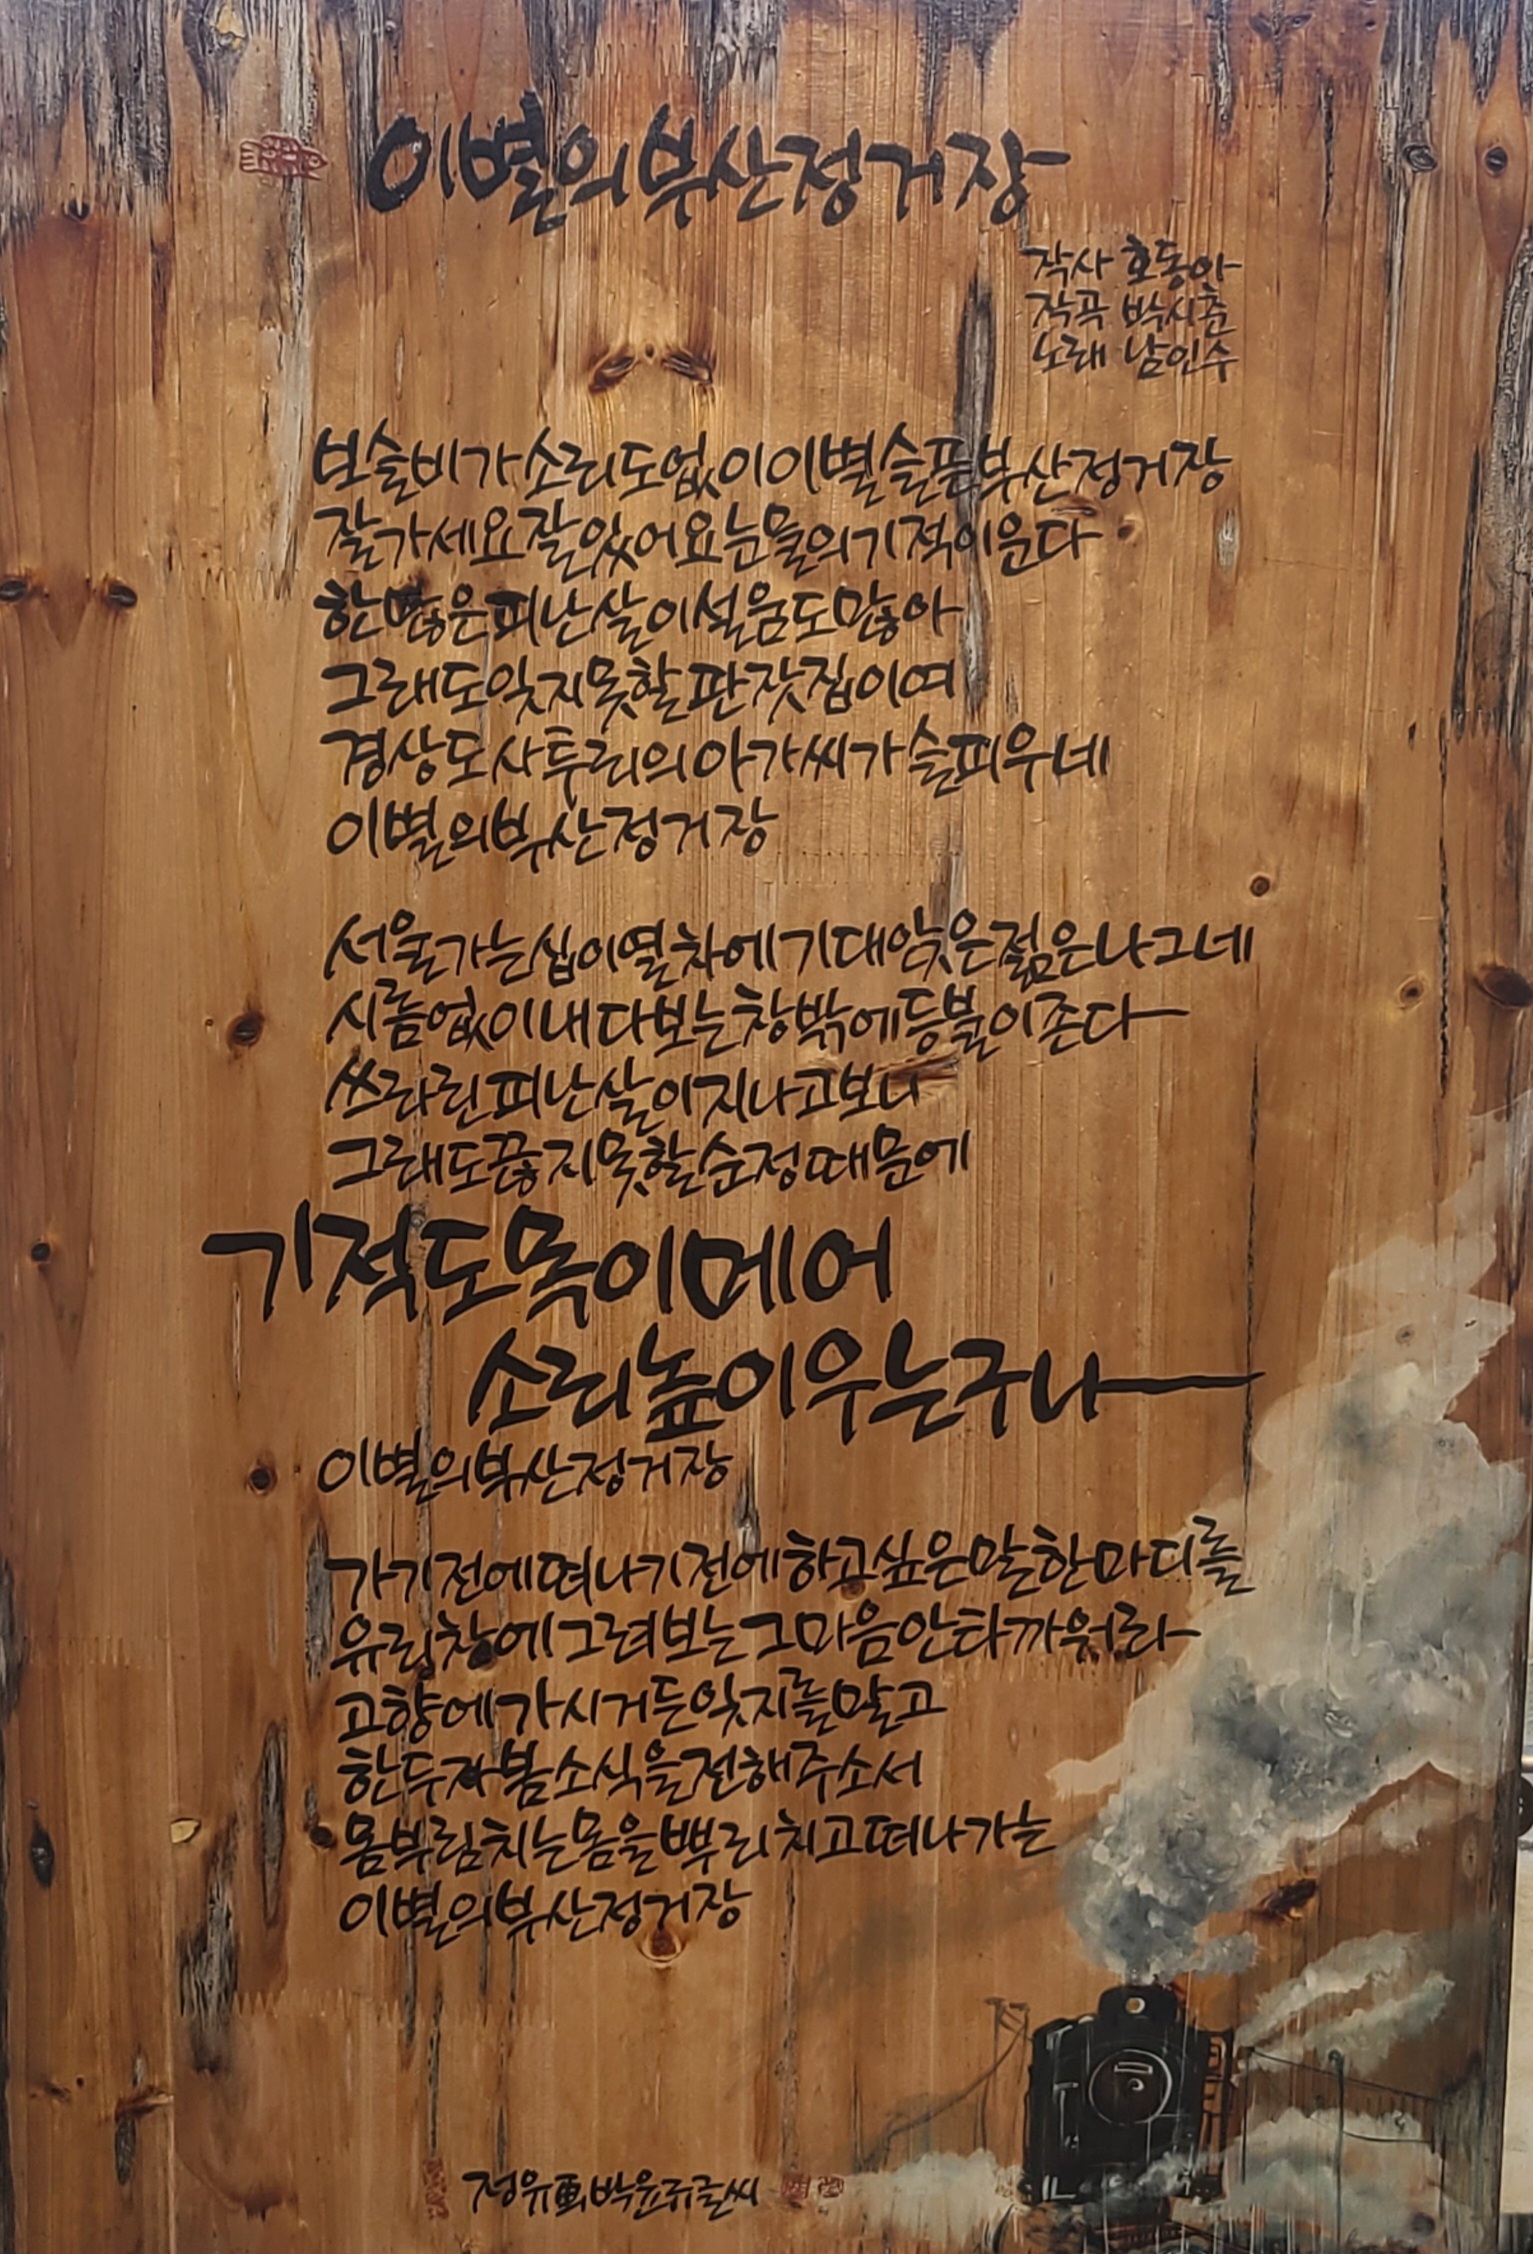 이별의 부산정거장
작사 호동아
작곡 박시춘
노래 남인수
보슬비가 소리도 없이 이별 슬픈 부산정거장
잘 가세요 잘 있어요 눈물의 기적이 운다
한 많은 피난살이 설움도 많아
그래도 잊지 못할 판잣집이여
경상도 사투리의 아가씨가 슬피 우네
이별의 부산정거장
서울 가는 십이열차에 기대 앉은 젊은 나그네
시름없이 내다보는 창밖에 등불이 존다
쓰라린 피난살이 지나고 보니
그래도 끊지 못할 순정 때문에
기적도 목이 메어
소리 높이 우는구나
이별의 부산정거장
가기 전에 떠나기 전에 하고 싶은 말 한마디를
유리창에 그려보는 그 마음 안타까워라
고향에 가시거든 잊지를 말고
한두 자 봄소식을 전해주소서
몸부림치는 몸을 뿌리치고 떠나가는
이별의 부산정거장
정유画 박윤규글씨